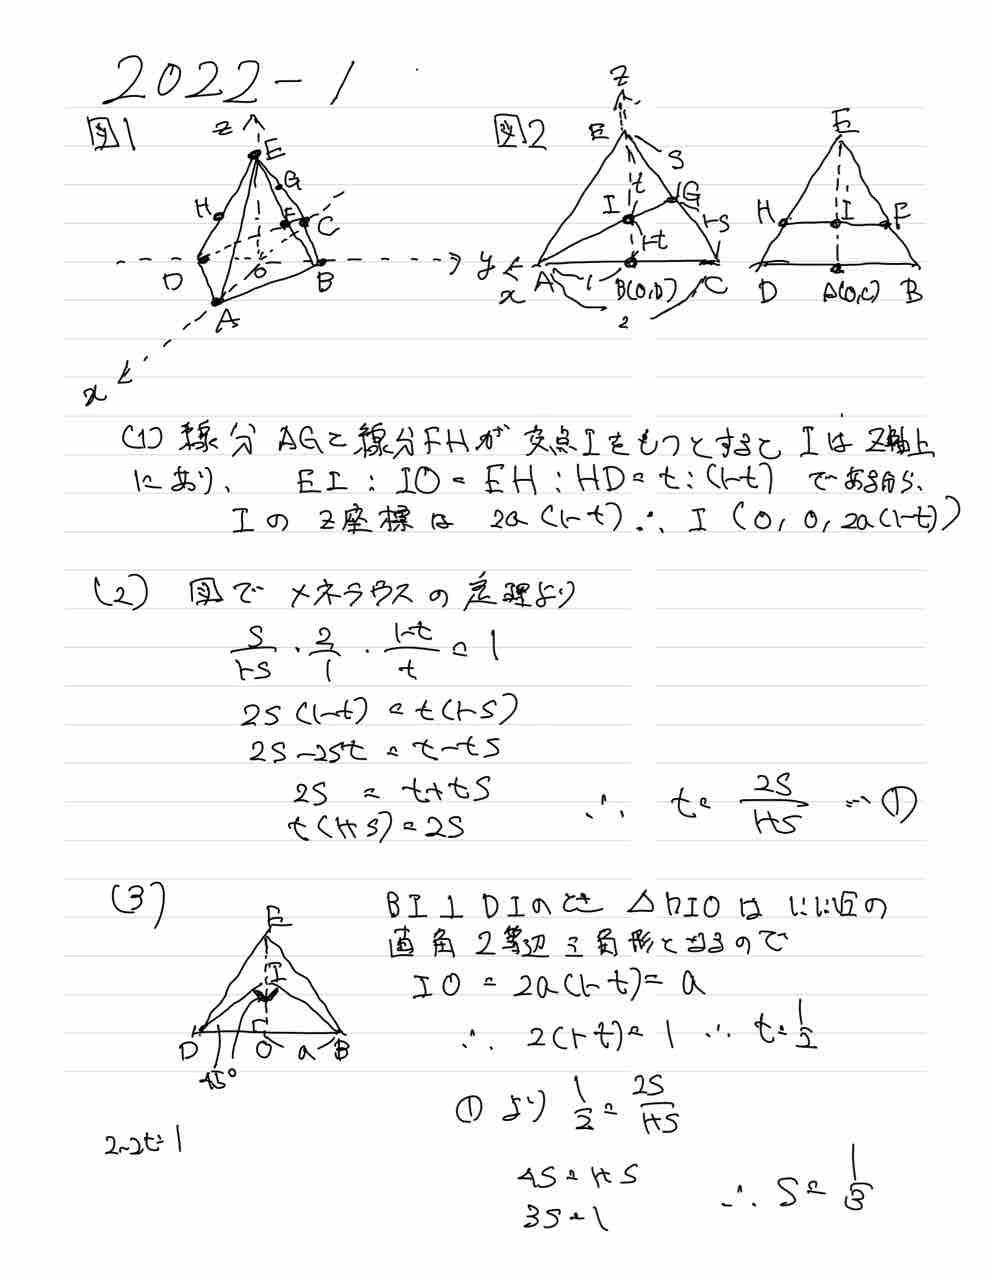 2022-1
図1
z
E
G
H
F
C
D
O
B
y
A
x
図2
z
E
S
t
G
I
1-S
1-t
x
A
1
B(O,D)
C
2
E
H
I
F
D
A(O,C)
B
(1) 線分AGと線分FHが交点Iをもつとすると Iはz軸上
にあり、 EI : IO = EH : HD = t : (1-t) であるから、
Iのz座標は 2a(1-t) ∴ I (0, 0, 2a(1-t))
(2) 図でメネラウスの定理より
S/(1-S) ・ 2/1 ・ (1-t)/t = 1
2S(1-t) = t(1-S)
2S-2St = t-tS
2S = t+tS
t(1+S) = 2S ∴ t = 2S/(1+S) …①
(3)
E
I
D
O
a
B
45°
BI⊥DIのとき △BIOは1:1:√2の
直角2等辺三角形となるので
IO = 2a(1-t) = a
∴ 2(1-t) = 1 ∴ t = 1/2
①より 1/2 = 2S/(1+S)
2-2t=1
4S = 1+S
3S = 1 ∴ S = 1/3